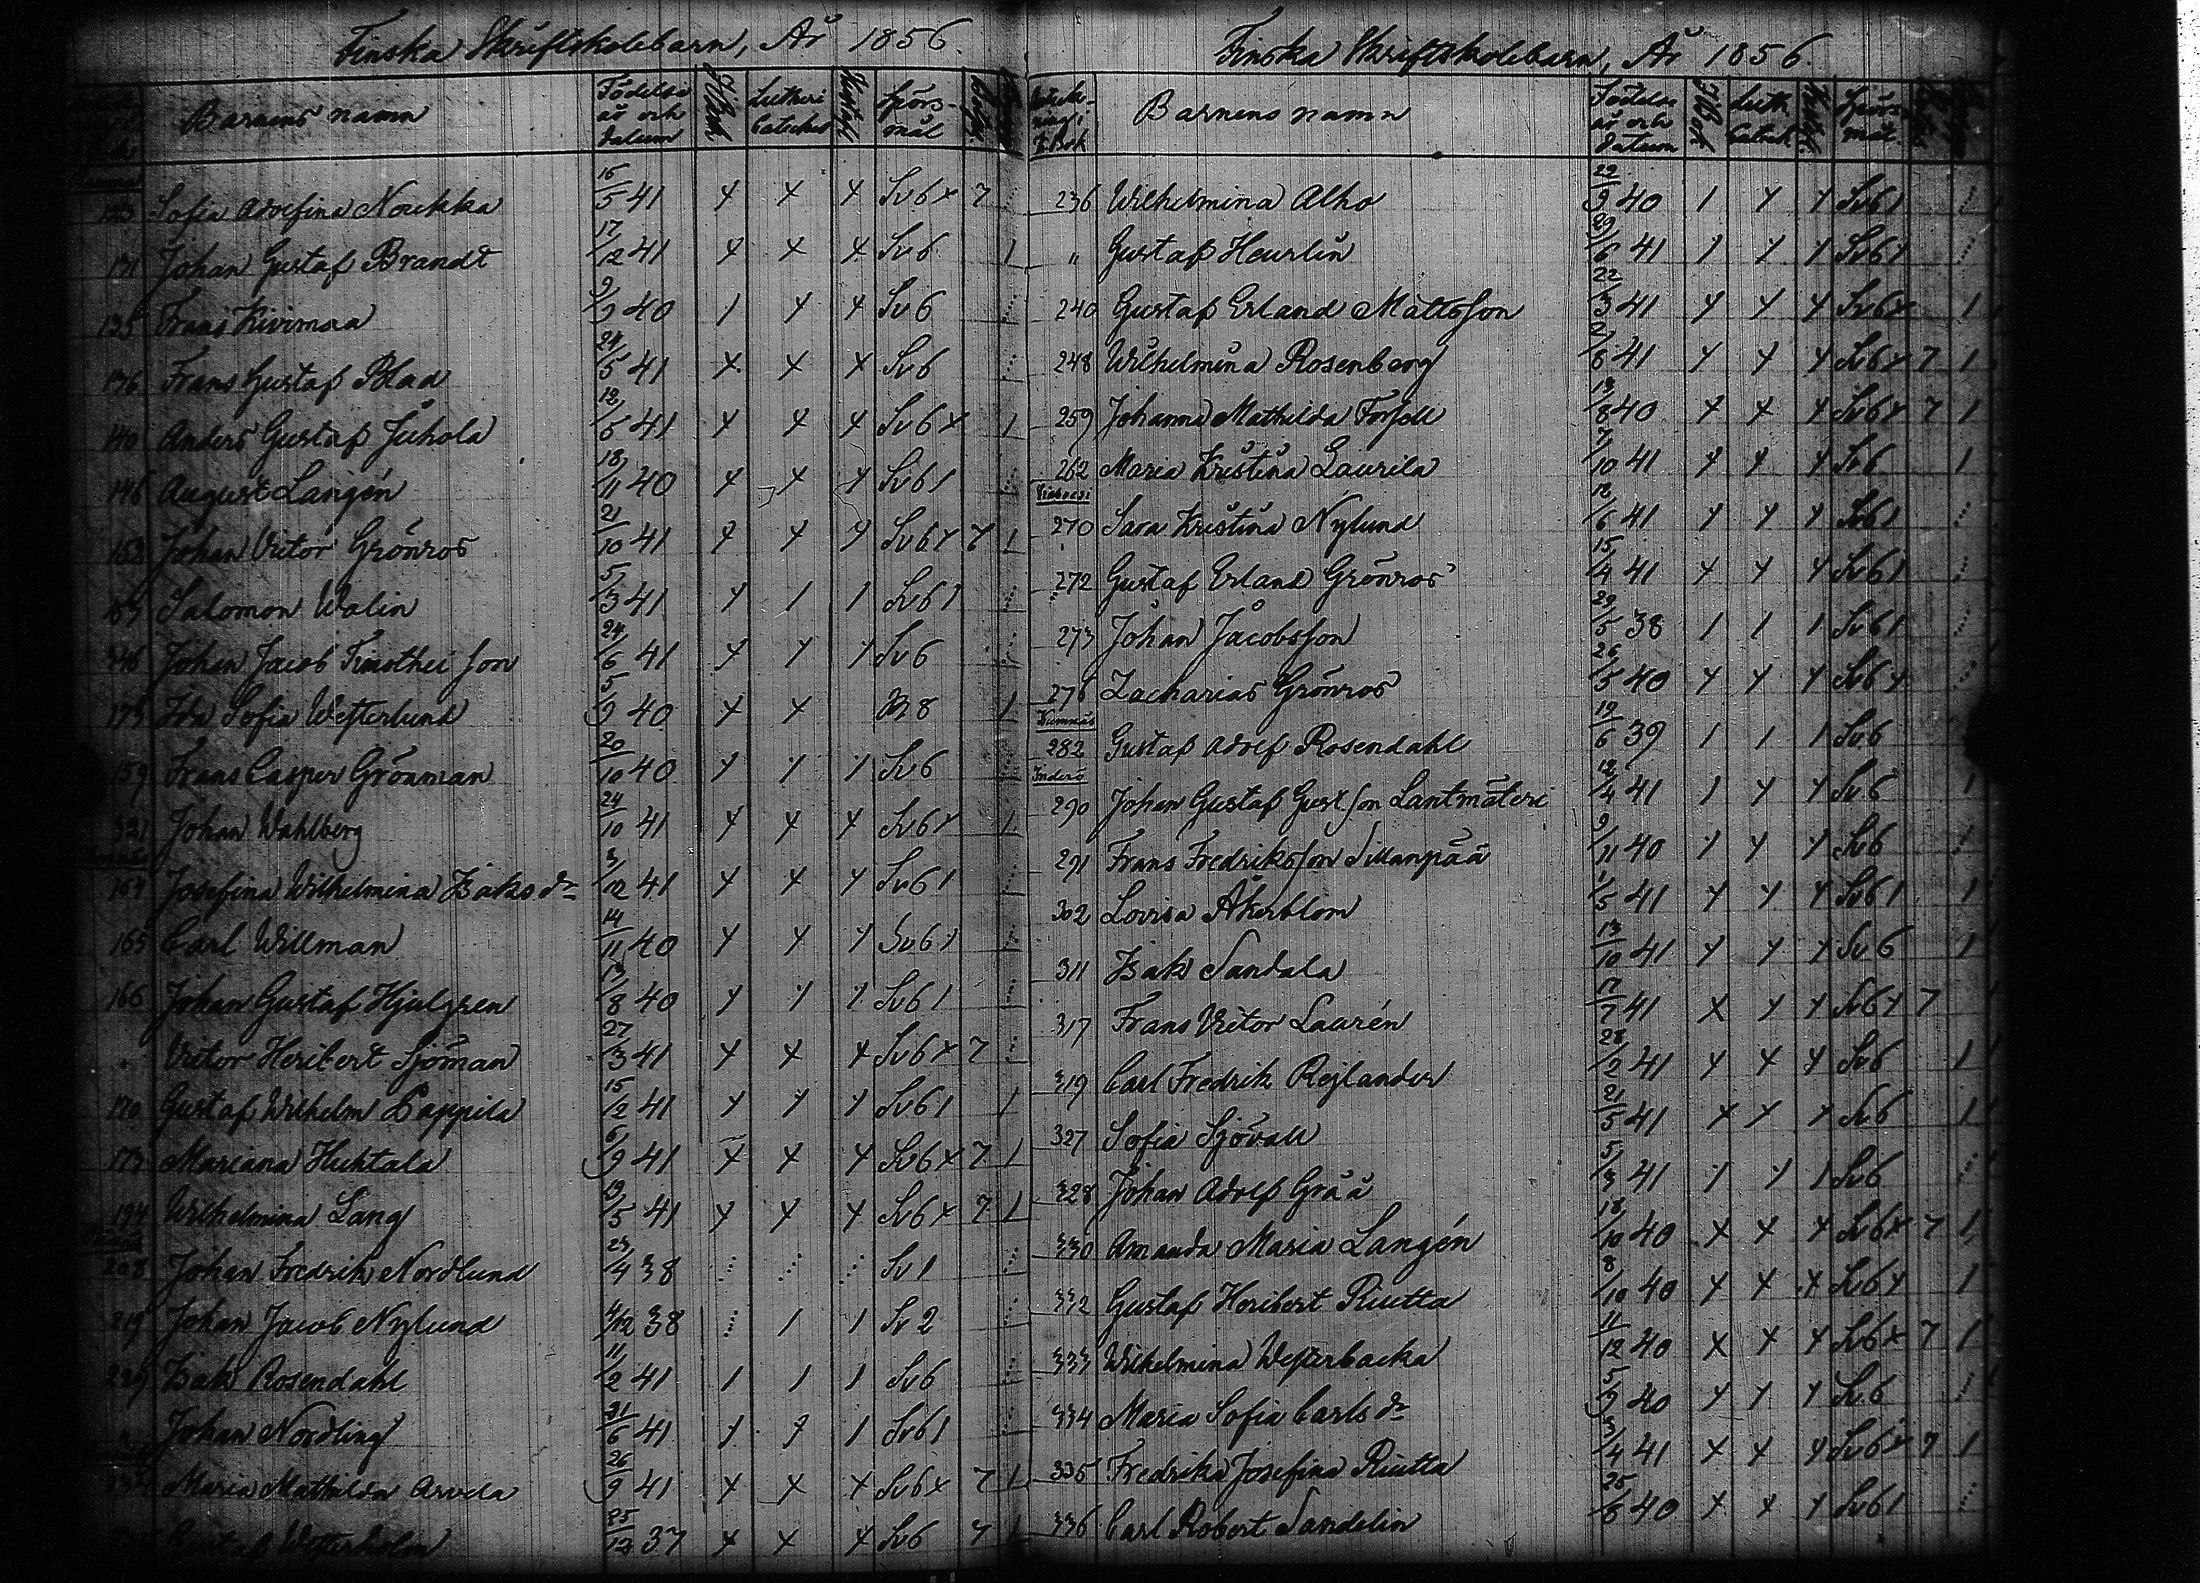 Finska Skriftskolebarn, År 1856.
Barnens namn Födelse år och datum Lutheri Cateches Spörsmål
Sofia Adolfina Noukka 16/5 41 x x x Sv6x 7
131 Johan Gustaf Brandt 17/12 41 x x x Sv6 1
135 Frans Kivimaa 9/9 40 1 x x Sv6
136 Frans Gustaf Blad 24/5 41 x x x Sv6
140 Anders Gustaf Juhola 12/5 41 x x x Sv6x 1
146 August Langén 18/11 40 x x x Sv61
152 Johan Victor Grönros 21/10 41 x x x Sv6x 7 1
Salomon Walin 5/3 41 x 1 1 Sv61
Johan Jacob Timothei son 24/6 41 x x 1 Sv6
Ida Sofia Westerlund 5/9 40 x x B8 1
159 Frans Casper Grönman 20/10 40 x 1 1 Sv6
321 Johan Wahlberg 24/10 41 x x x Sv6x 1
164 Josefina Wilhelmina Isaks dr 3/12 41 x x x Sv61
165 Carl Willman 14/11 40 x x x Sv61
166 Johan Gustaf Hjulgren 13/8 40 x 1 1 Sv61
" Victor Heribert Sjöman 27/3 41 x x x Sv6x 7
170 Gustaf Wilhelm Pappila 15/2 41 x x x Sv61 1
173 Mariana Huhtala 6/9 41 x x x Sv6x 7 1
194 Wilhelmina Lang 19/5 41 x x x Sv6x 7 1
208 Johan Fredrik Nordlund 23/4 38 Sv1
219 Johan Jacob Nylund 4/12 38 1 1 Sv2
229 Isak Rosendahl 11/2 41 1 1 1 Sv6
" Johan Nordling 21/6 41 x x 1 Sv61
Maria Mathilda Arvela 26/9 41 x x x Sv6x 7 1
Gustaf Westerholm 25/12 37 x x x Sv6 7 1
Finska Skriftskolebarn, År 1856.
Barnens namn Födelse år och datum Luth. Catech. Spörsmål
236 Wilhelmina Alho 29/9 40 1 x x Sv61
" Gustaf Heurlin 29/6 41 1 x x Sv61
240 Gustaf Erland Mattsson 22/3 41 x x x Sv6x 1
248 Wilhelmina Rosenberg 2/6 41 x x x Sv6x 7 1
259 Johanna Mathilda Forsell 13/8 40 x x x Sv6x 7 1
262 Maria Kristina Laurila 7/10 41 x x x Sv6 1
270 Sara Kristina Nylund 12/6 41 x x x Sv61
272 Gustaf Erland Grönros 15/4 41 x x x Sv61
273 Johan Jacobsson 29/5 38 1 1 1 Sv61
276 Zacharias Grönros 26/5 40 x x x Sv6x
Kumnäs
282 Gustaf Adolf Rosendahl 19/6 39 1 1 1 Sv6
290 Johan Gustaf Gust.son Lantmäteri 12/4 41 1 x x Sv6 1
291 Frans Fredriksson Sillanpää 9/11 40 x x x Sv6
302 Lovisa Åkerblom 1/5 41 x x x Sv61 1
311 Isak Sandala 13/10 41 x x x Sv6 1
317 Frans Victor Laurén 17/7 41 x x x Sv6x 7
319 Carl Fredrik Rejlander 28/2 41 x x x Sv6 1
327 Sofia Sjövall 21/5 41 x x x Sv6 1
328 Johan Adolf Grää 5/3 41 x x 1 Sv6
330 Amanda Maria Langén 18/10 40 x x x Sv6x 7 1
332 Gustaf Heribert Riutta 8/10 40 x x x Sv6x 1
333 Wilhelmina Westerbacka 11/12 40 x x x Sv6x 7 1
334 Maria Sofia Carls dr 5/9 40 x x x Sv6
335 Fredrika Josefina Riutta 3/4 41 x x x Sv6x 7 1
336 Carl Robert Sandelin 25/6 40 x x x Sv61